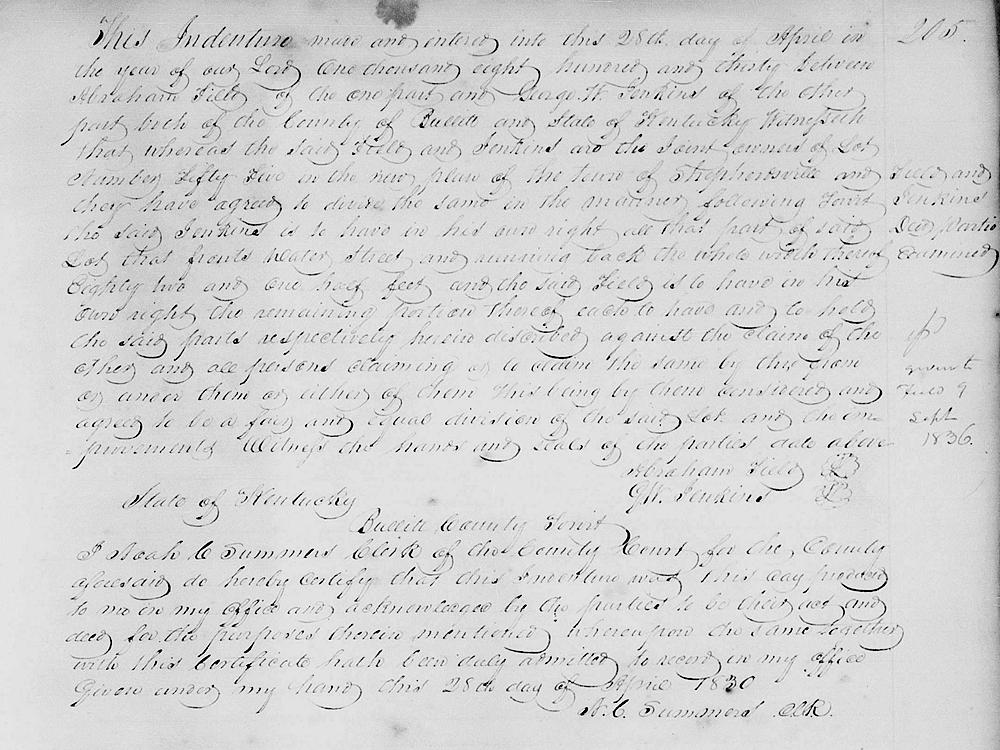 205.
This Indenture made and entered into this 28th day of April in
the year of our Lord One thousand eight hundred and thirty between
Abraham Field of the one part and George W. Jenkins of the other
part both of the County of Bullitt and State of Kentucky Witnesseth
that whereas the said Field and Jenkins are the Joint owners of Lot
Number Fifty Five in the new plan of the town of Shepherdsville and
they have agreed to divide the same in the manner following Towit
the said Jenkins is to have in his own right all that part of said
Lot that fronts Water Street and running back the whole width thereof
Eighty two and one half feet and the said Field is to have in his
own right the remaining portion thereof each to have and to hold
the said parts respectively herein described against the claim of the
other and all persons claiming or to claim the same by thro from
or under them or either of them This being by them considered and
agreed to be a fair and equal division of the said Lot and the im-
provements Witness the hands and seals of the parties date above
Abraham Field
G W. Jenkins
Field and
Jenkins
Deed Partitio
Examined
given to
Field 9
Sept
1836.
State of Kentucky
Bullitt County Towit
I Noah C Summers Clerk of the County Court for the County
aforesaid do hereby Certify that this Indenture was this day produced
to me in my office and acknowledged by the parties to be their act and
deed for the purposes therein mentioned whereupon the same together
with this Certificate hath been duly admitted to record in my office
Given under my hand this 28th day of April 1830
N. C. Summers Clk.